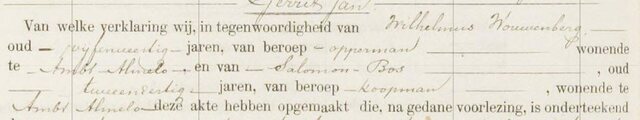 Gerrit Jan
Van welke verklaring wij, in tegenwoordigheid van Wilhelmus Wouwenberg,
oud vijfenveertig jaren, van beroep opperman wonende
te Ambt Almelo, en van Salomon Bos, oud
tweeendertig jaren, van beroep koopman, wonende te
Ambt Almelo deze akte hebben opgemaakt die, na gedane voorlezing, is onderteekend